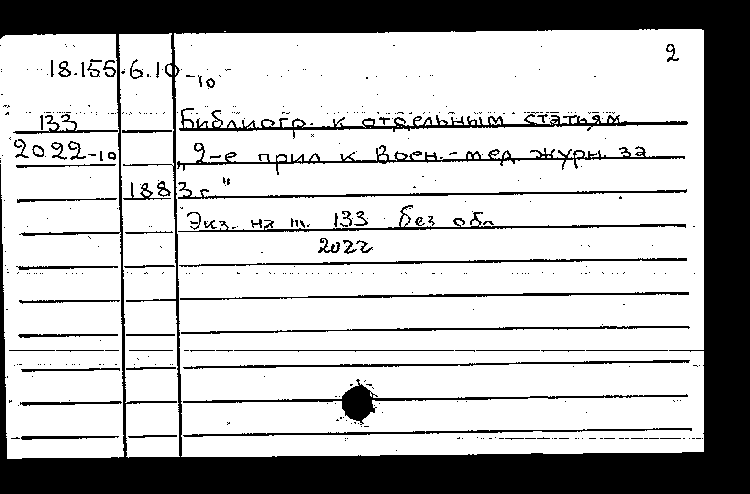 2
18.155.6.10-10
133 Библиогр. к отдельным статьям
2022-10 „2-е прил к Воен.-мед журн. за
1883 г."
Экз. на ш. 133 без обл
2022